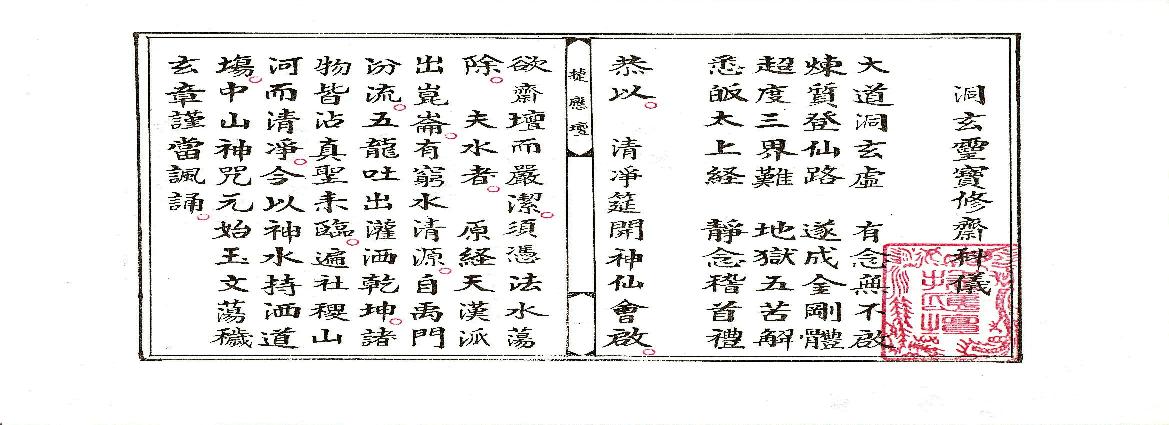 洞玄靈寶修齋科儀
大道洞玄虛 有念無不啟
煉質登仙路 遂成金剛體
超度三界難 地獄五苦解
悉皈太上経 靜念稽首禮
恭以 清凈筵開神仙會啟
捷應壇
欲齋壇而嚴潔須憑法水蕩
除 夫水者 原経天漢派
出崑崙有窮水清源自禹門
汾流五龍吐出灌洒乾坤諸
物皆沾真聖来臨遍社稷山
河而清凈今以神水持洒道
場中山神咒元始玉文蕩穢
玄章謹當諷誦